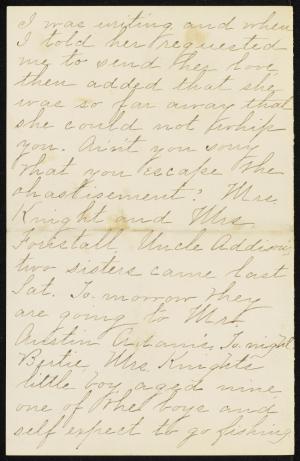 I was writing and when
I told her requested
me to send her love,
then added that she
was so far away that
she could not whip
you. Ain't you sorry
that you escape the
chastisement? Mrs.
Knight and Mrs
Forestall Uncle Addison's
two sisters came last
Sat. To-morrow they
are going to Mrs
Austin To night
Bertie, Mrs. Knights
little boy aged nine
one of the boys and
self expect to go fishing